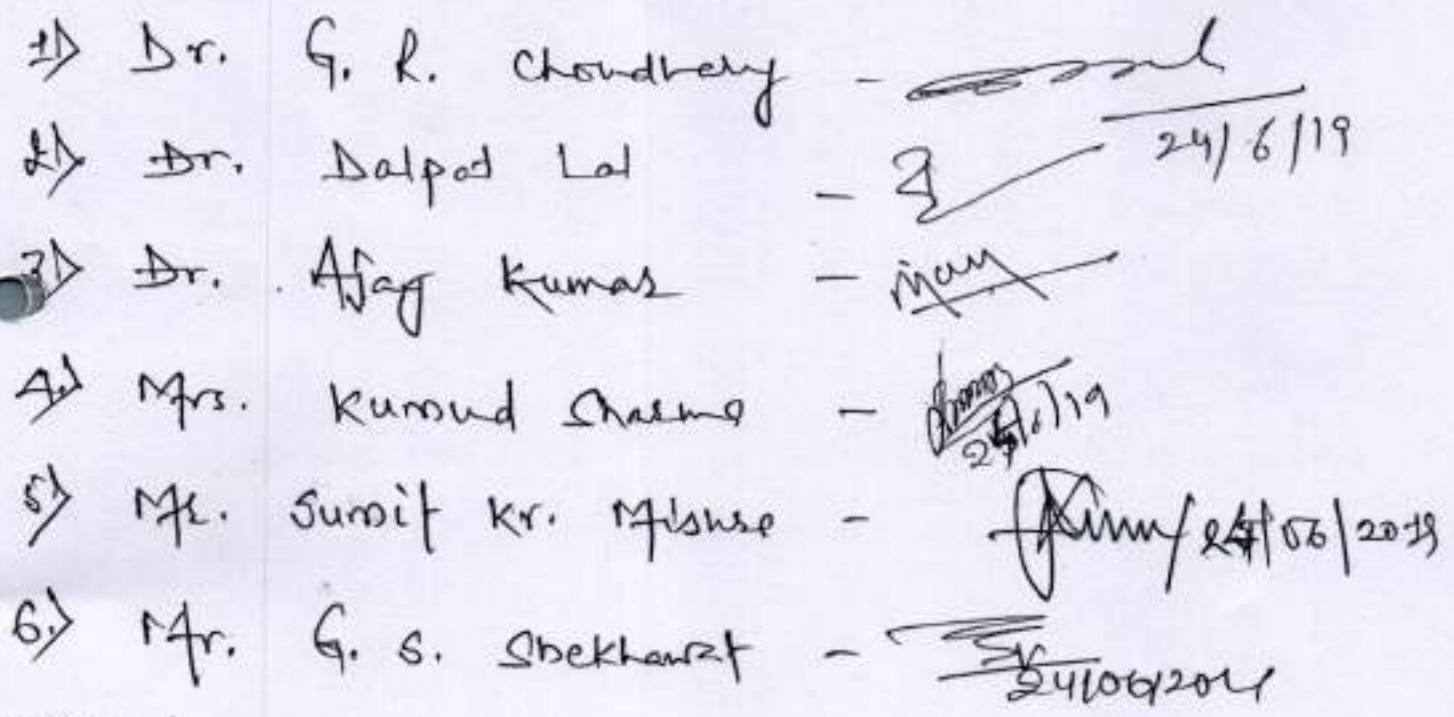 1) Dr. G. R. Choudhary -
24/6/19
2) Dr. Dalpat Lal -
3) Dr. Ajay Kumar -
4.) Mrs. Kumud Sharma -
24/6/19
5) Mr. Sumit Kr. Mishra - 24/06/2019
6.) Mr. G. S. Shekhawat -
24/06/2019